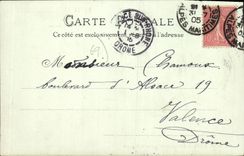 CARTE POSTALE
Ce côté est exclusivement réservé à l'adresse
DROME
05
ALPES MARITIMES
Monsieur Chamoux
boulevard d'Alsace 19
Valence
Drôme